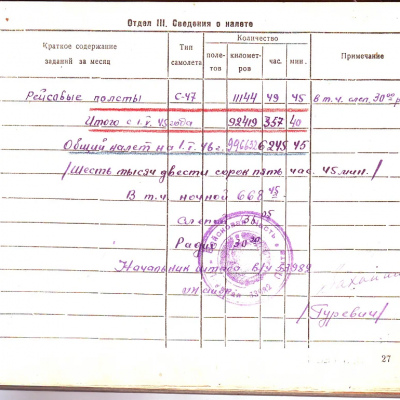 Отдел III. Сведения о налете
Краткое содержание заданий за месяц
Тип самолета
Количество
полетов
километров
час.
мин.
Примечание
Рейсовые полеты С-47 11144 49 45 в т.ч. слеп. 30 00
Итого с I.V. 45 года 92419 357 40
Общий налет на I.V. 46 г. 996622 6245 45
/Шесть тысяч двести сорок пять час. 45 мин./
В т.ч. ночной 668 45
Слепой
Радио
Начальник штаба в/ч 53989
/Гуревич/
27